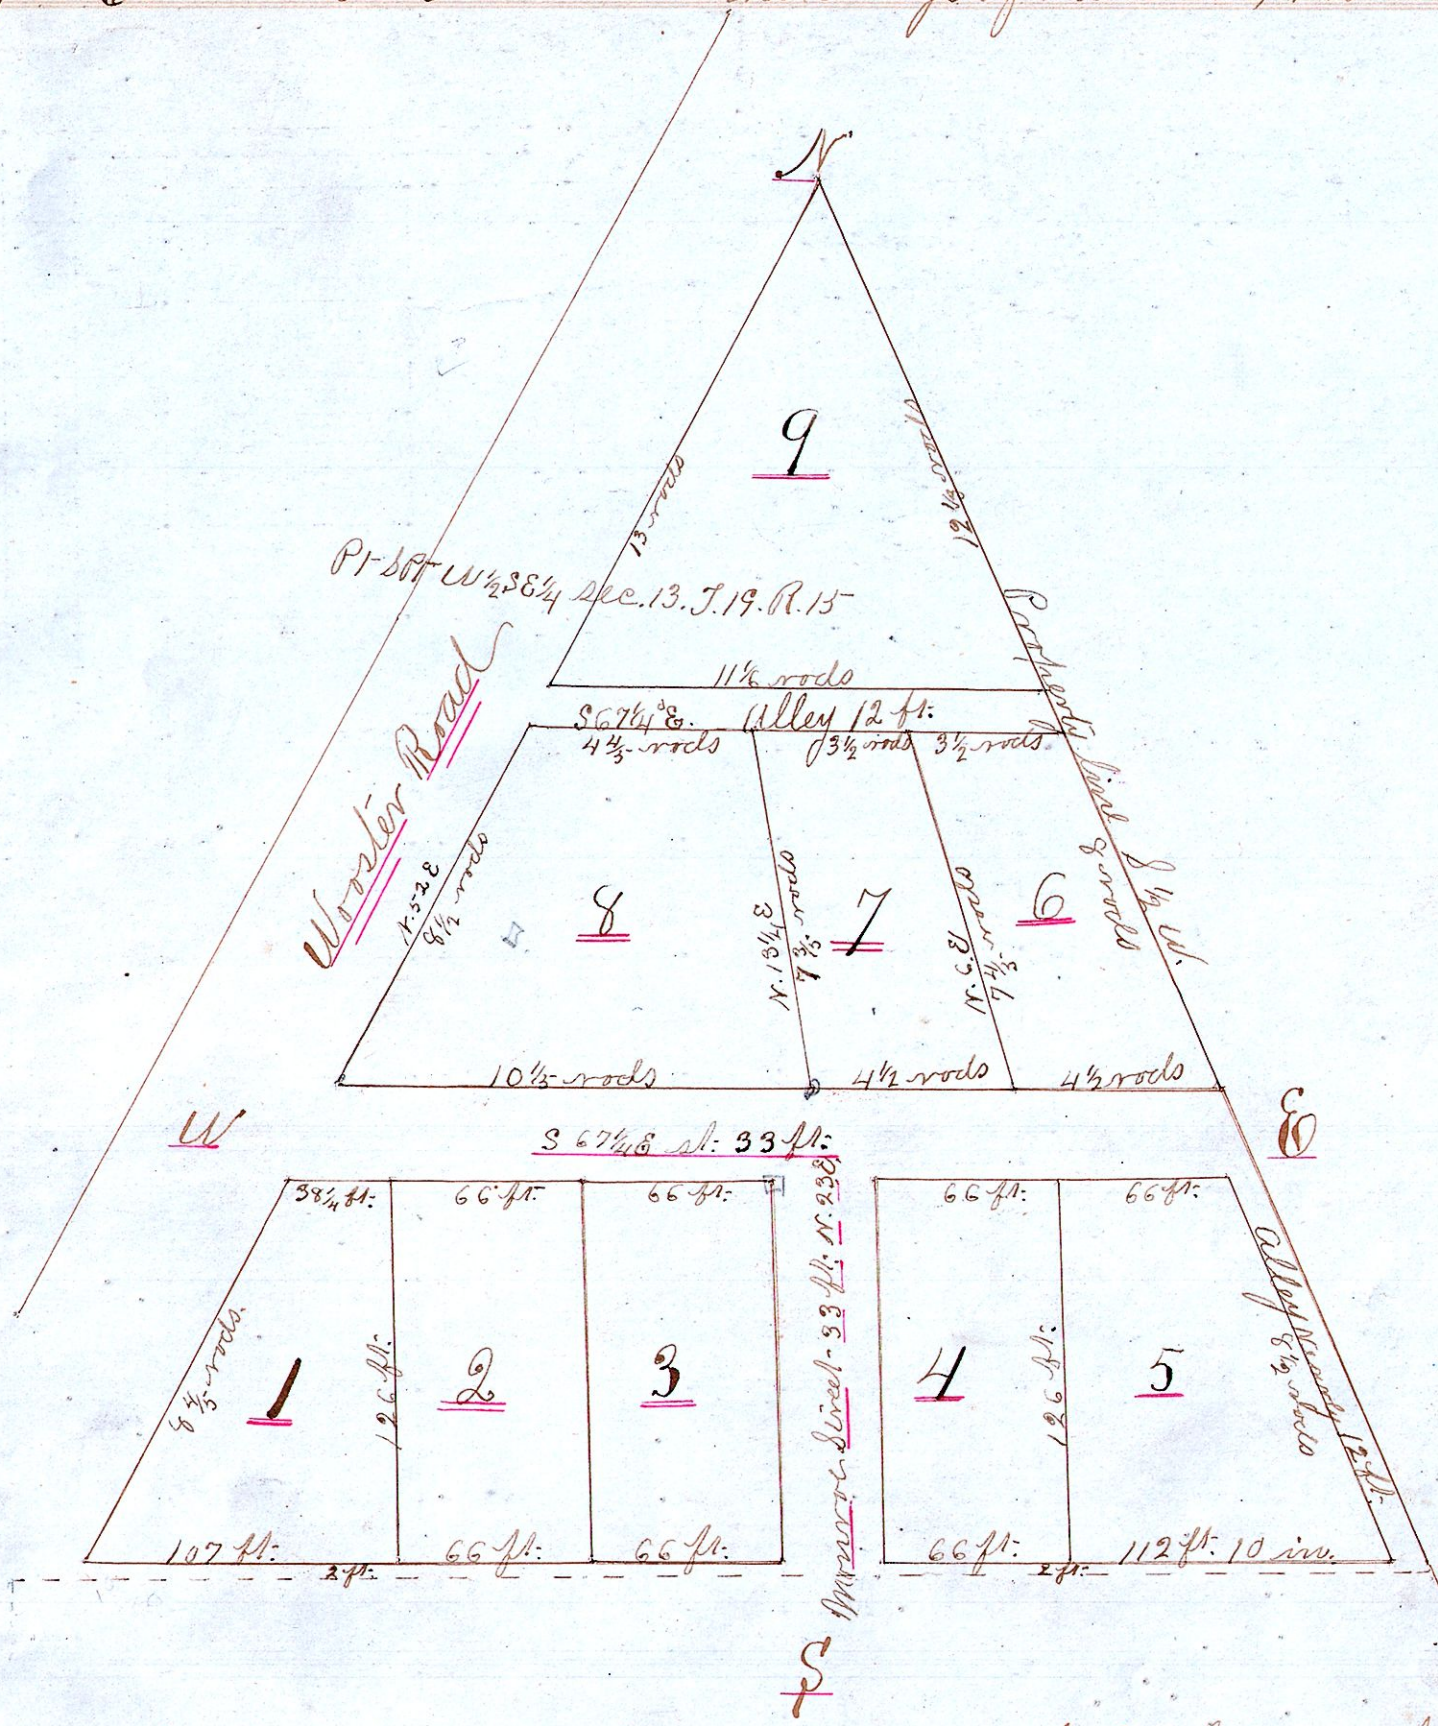 N
9
13 rods
12 1/2 rods
Pt S Pt W 1/2 SE 1/4 Sec. 13. T. 19. R. 15
11 1/6 rods
S 67 1/4° E. Alley 12 ft.
4 4/5 rods
3 1/2 rods
3 1/2 rods
Wooster Road
Property line 8 1/2 W.
8 rods
N. 52 E
8 1/2 rods
8
N. 13 1/4 E
7 3/5 rods
7
N. 6. E
7 4/5 rods
6
10 1/5 rods
4 1/2 rods
4 1/2 rods
W
S 67 1/4 E st: 33 ft:
E
38 1/4 ft:
66 ft:
66 ft:
66 ft:
66 ft:
8 4/5 rods.
1
126 ft:
2
3
Monroe Street - 33 ft: N. 23 E
4
126 ft:
5
Alley Nearly 12 ft.
8 1/2 rods
107 ft:
66 ft:
66 ft:
66 ft:
112 ft: 10 in.
2 ft:
2 ft:
S